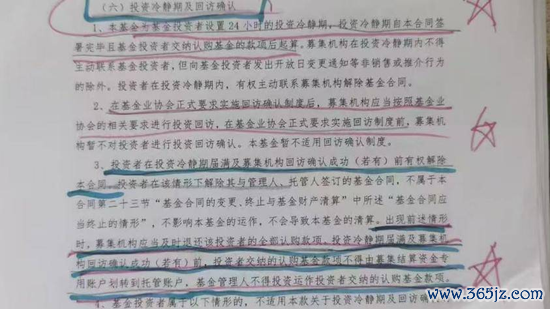 （六）投资冷静期及回访确认
1、本基金为基金投资者设置24小时的投资冷静期，投资冷静期自本合同签
署完毕且基金投资者交纳认购基金的款项后起算。募集机构在投资冷静期内不得
主动联系基金投资者，但向基金投资者发出开放日变更通知等非销售或推介行为
的除外。投资者在投资冷静期内，有权主动联系募集机构解除基金合同。
2、在基金业协会正式要求实施回访确认制度后，募集机构应当按照基金业
协会的相关要求进行投资回访，在基金业协会正式要求实施回访制度前，募集机
构暂不对投资者进行回访确认。本基金暂不适用回访确认制度。
3、投资者在投资冷静期届满及募集机构回访确认成功（若有）前有权解除
本合同。投资者在该情形下解除其与管理人、托管人签订的基金合同，不属于本
合同第二十三节“基金合同的变更、终止与基金财产清算”中所述“基金合同应
当终止的情形”，不影响本基金的运作，不会导致本基金的清算。出现前述情形
时，募集机构应当及时退还该投资者的全部认购款项。投资冷静期届满及募集机
构回访确认成功（若有）前，投资者交纳的认购基金款项不得由募集结算资金专
用账户划转到托管账户，基金管理人不得投资运作投资者交纳的认购基金款项。
4、基金投资者属于以下情形的，不适用本款关于投资冷静期及回访确认
www.365jz.com